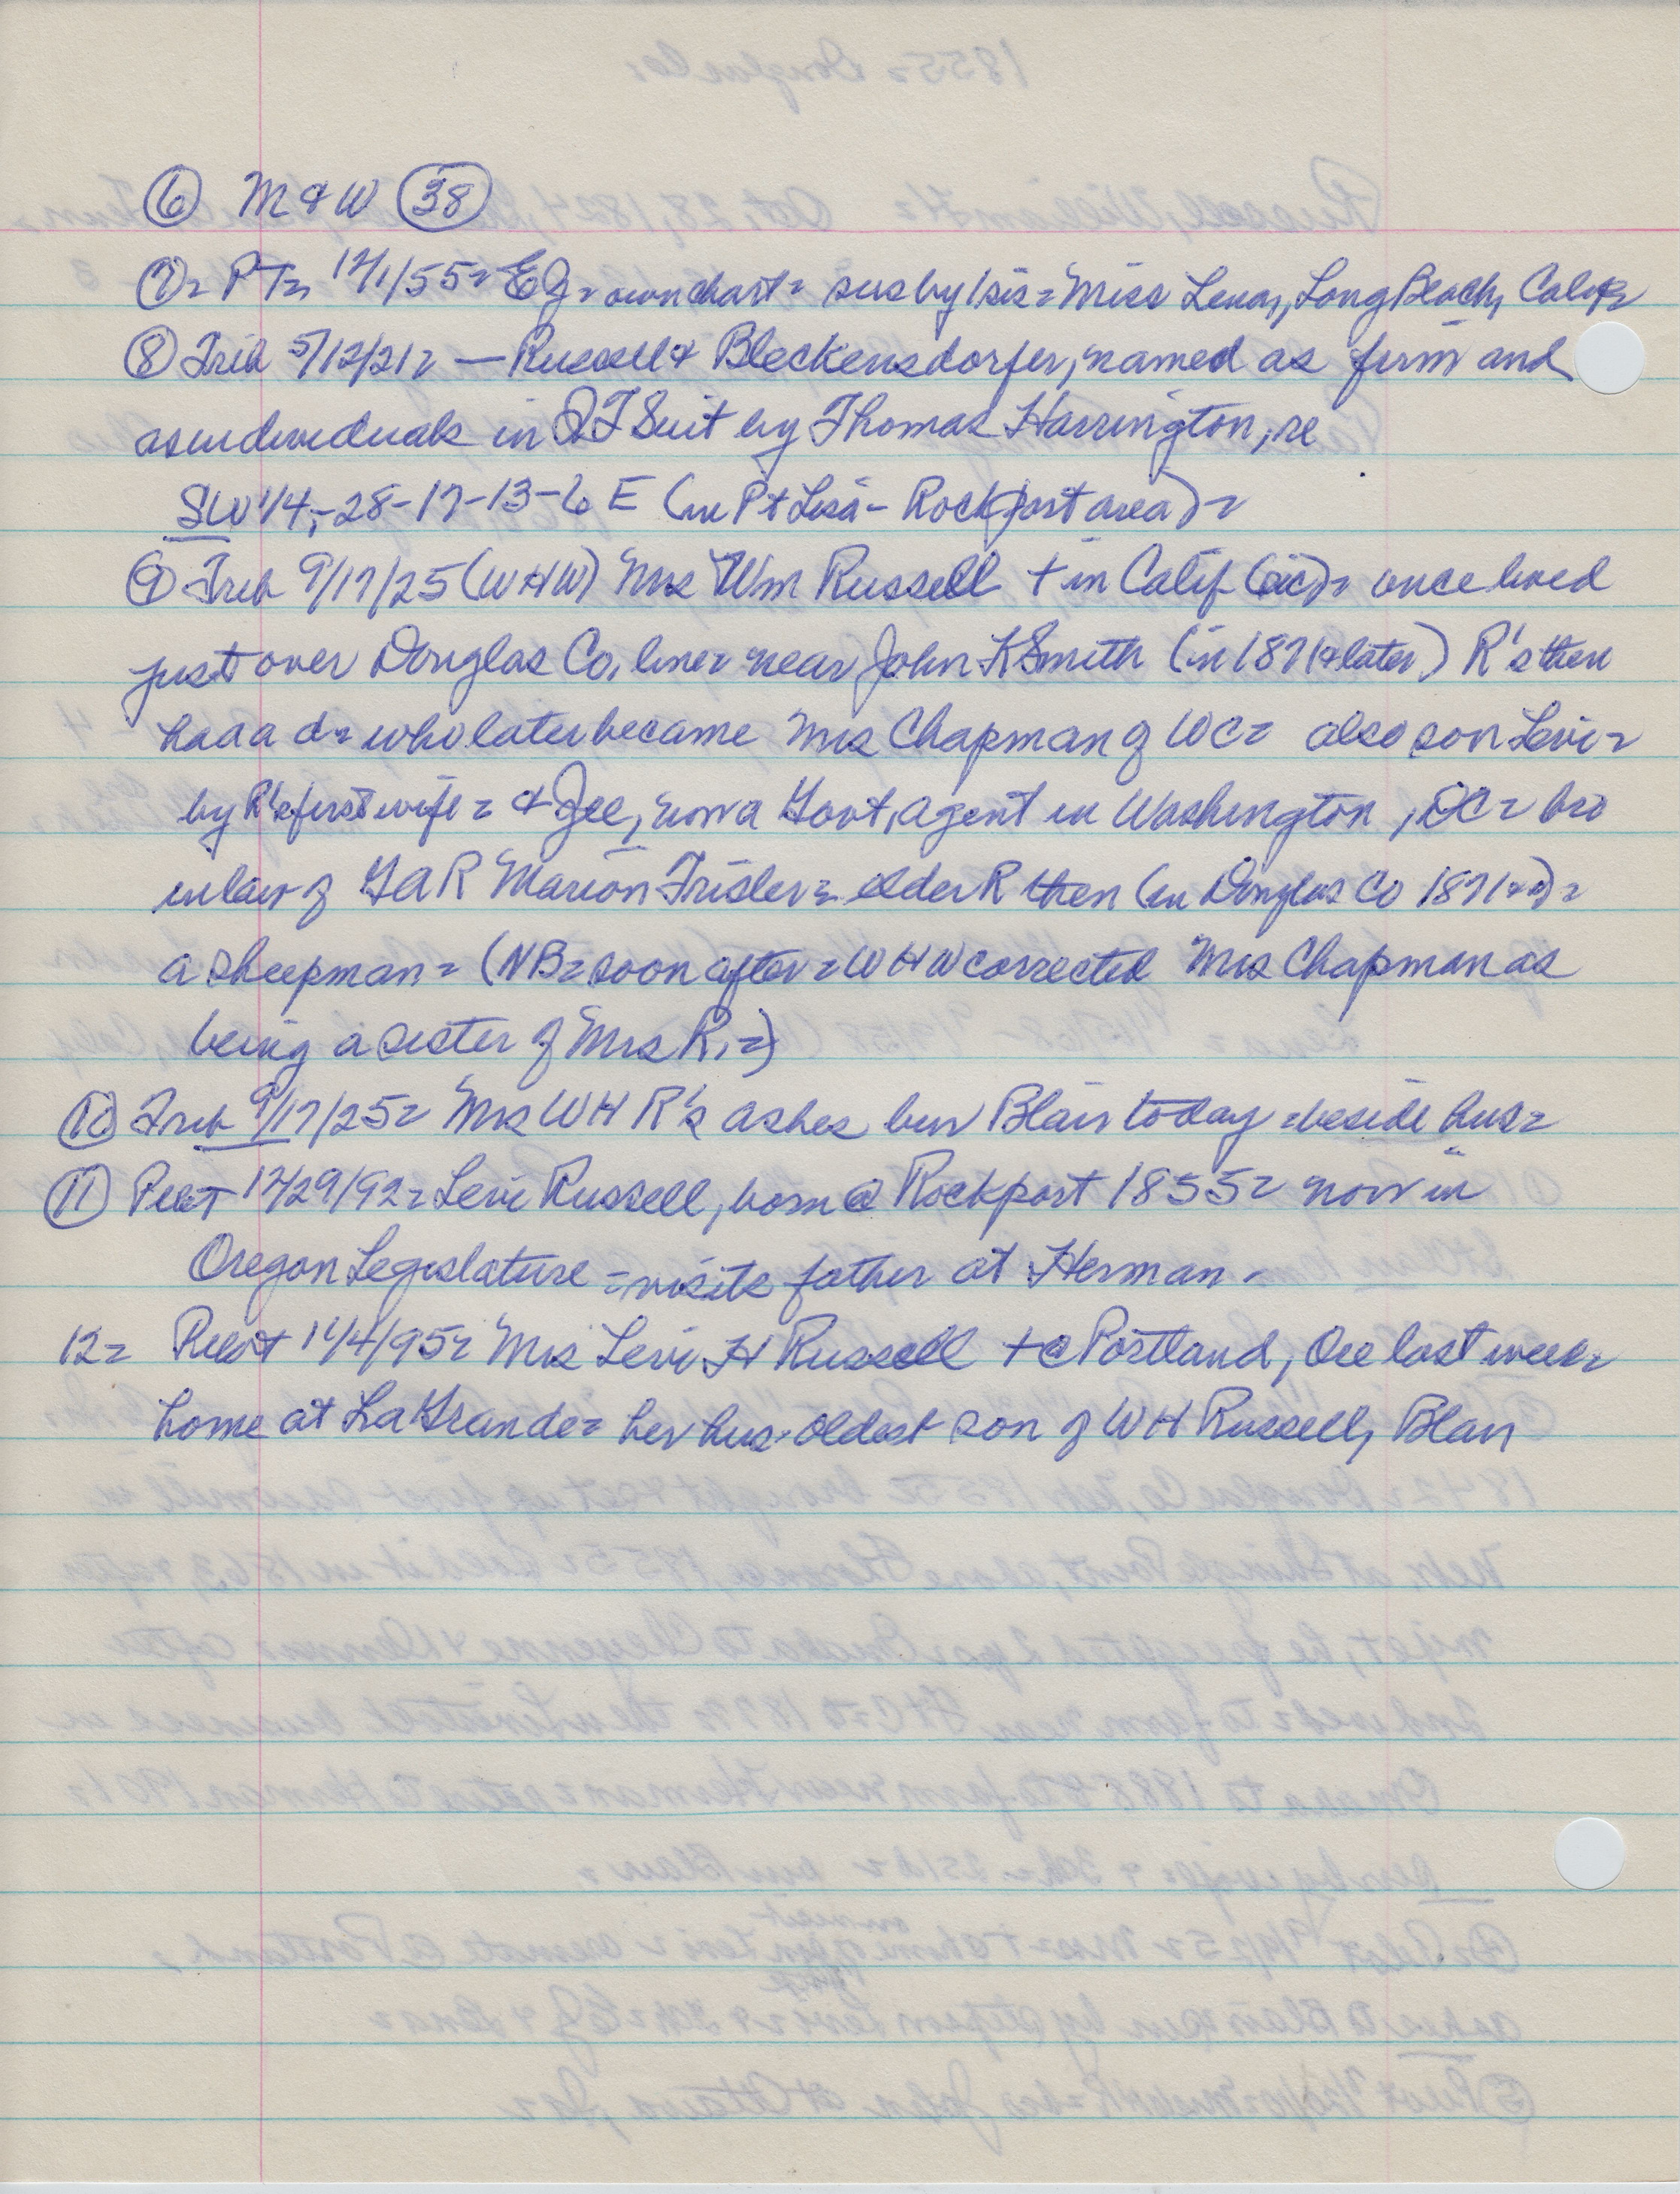 ⑥ M & W ㊳
⑦= PT= 12/1/55= EJ= own chart= sus by 1 sis= Miss Lena, Long Beach, Calif=
⑧ Trib 5/12/21= — Russell & Bleckensdorfer, named as firm and
as individuals in QT Suit by Thomas Harrington, re
SW 1/4,-28-17-13-6 E (in Pt Lisa - Rockport area)=
⑨ Trib 9/17/25 (WHW) Mrs Wm Russell + in Calif (sic)= once lived
just over Douglas Co, line= near John K Smith (in 1871 & later) R's then
had a d= who later became Mrs Chapman of WC= also son Levi=
by R's first wife= & Jee, now a Govt, agent in Washington, DC= bro
in law of GAR Marion Trisler= elder R then (in Douglas Co 1871 )=
a sheepman= (NB= soon after= WHW corrected Mrs Chapman as
being a sister of Mrs R,=)
⑩ Trib 9/17/25= Mrs WH R's ashes bur Blair today =beside hus=
⑪ Pilot 12/29/92= Levi Russell, born @ Rockport 1855= now in
Oregon Legislature = visits father at Herman -
12= Pilot 1/4/95= Mrs Levi H Russell + @ Portland, Ore last week=
home at La Grande= her hus. oldest son of WH Russell, Blair